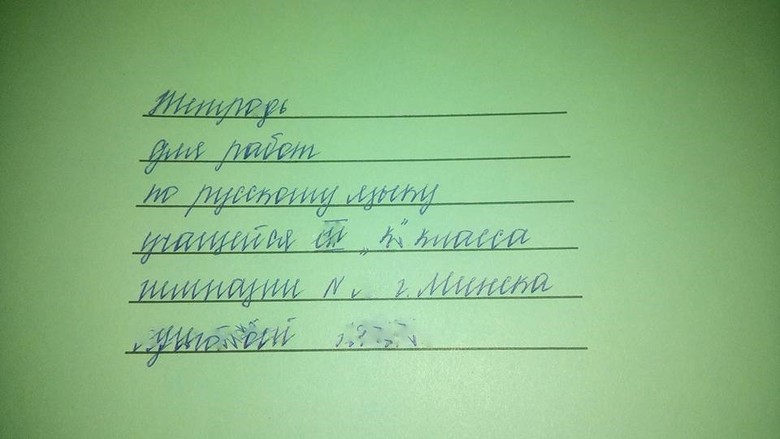 Тетрадь
для работ
по русскому языку
учащейся III „К" класса
гимназии № г. Минска